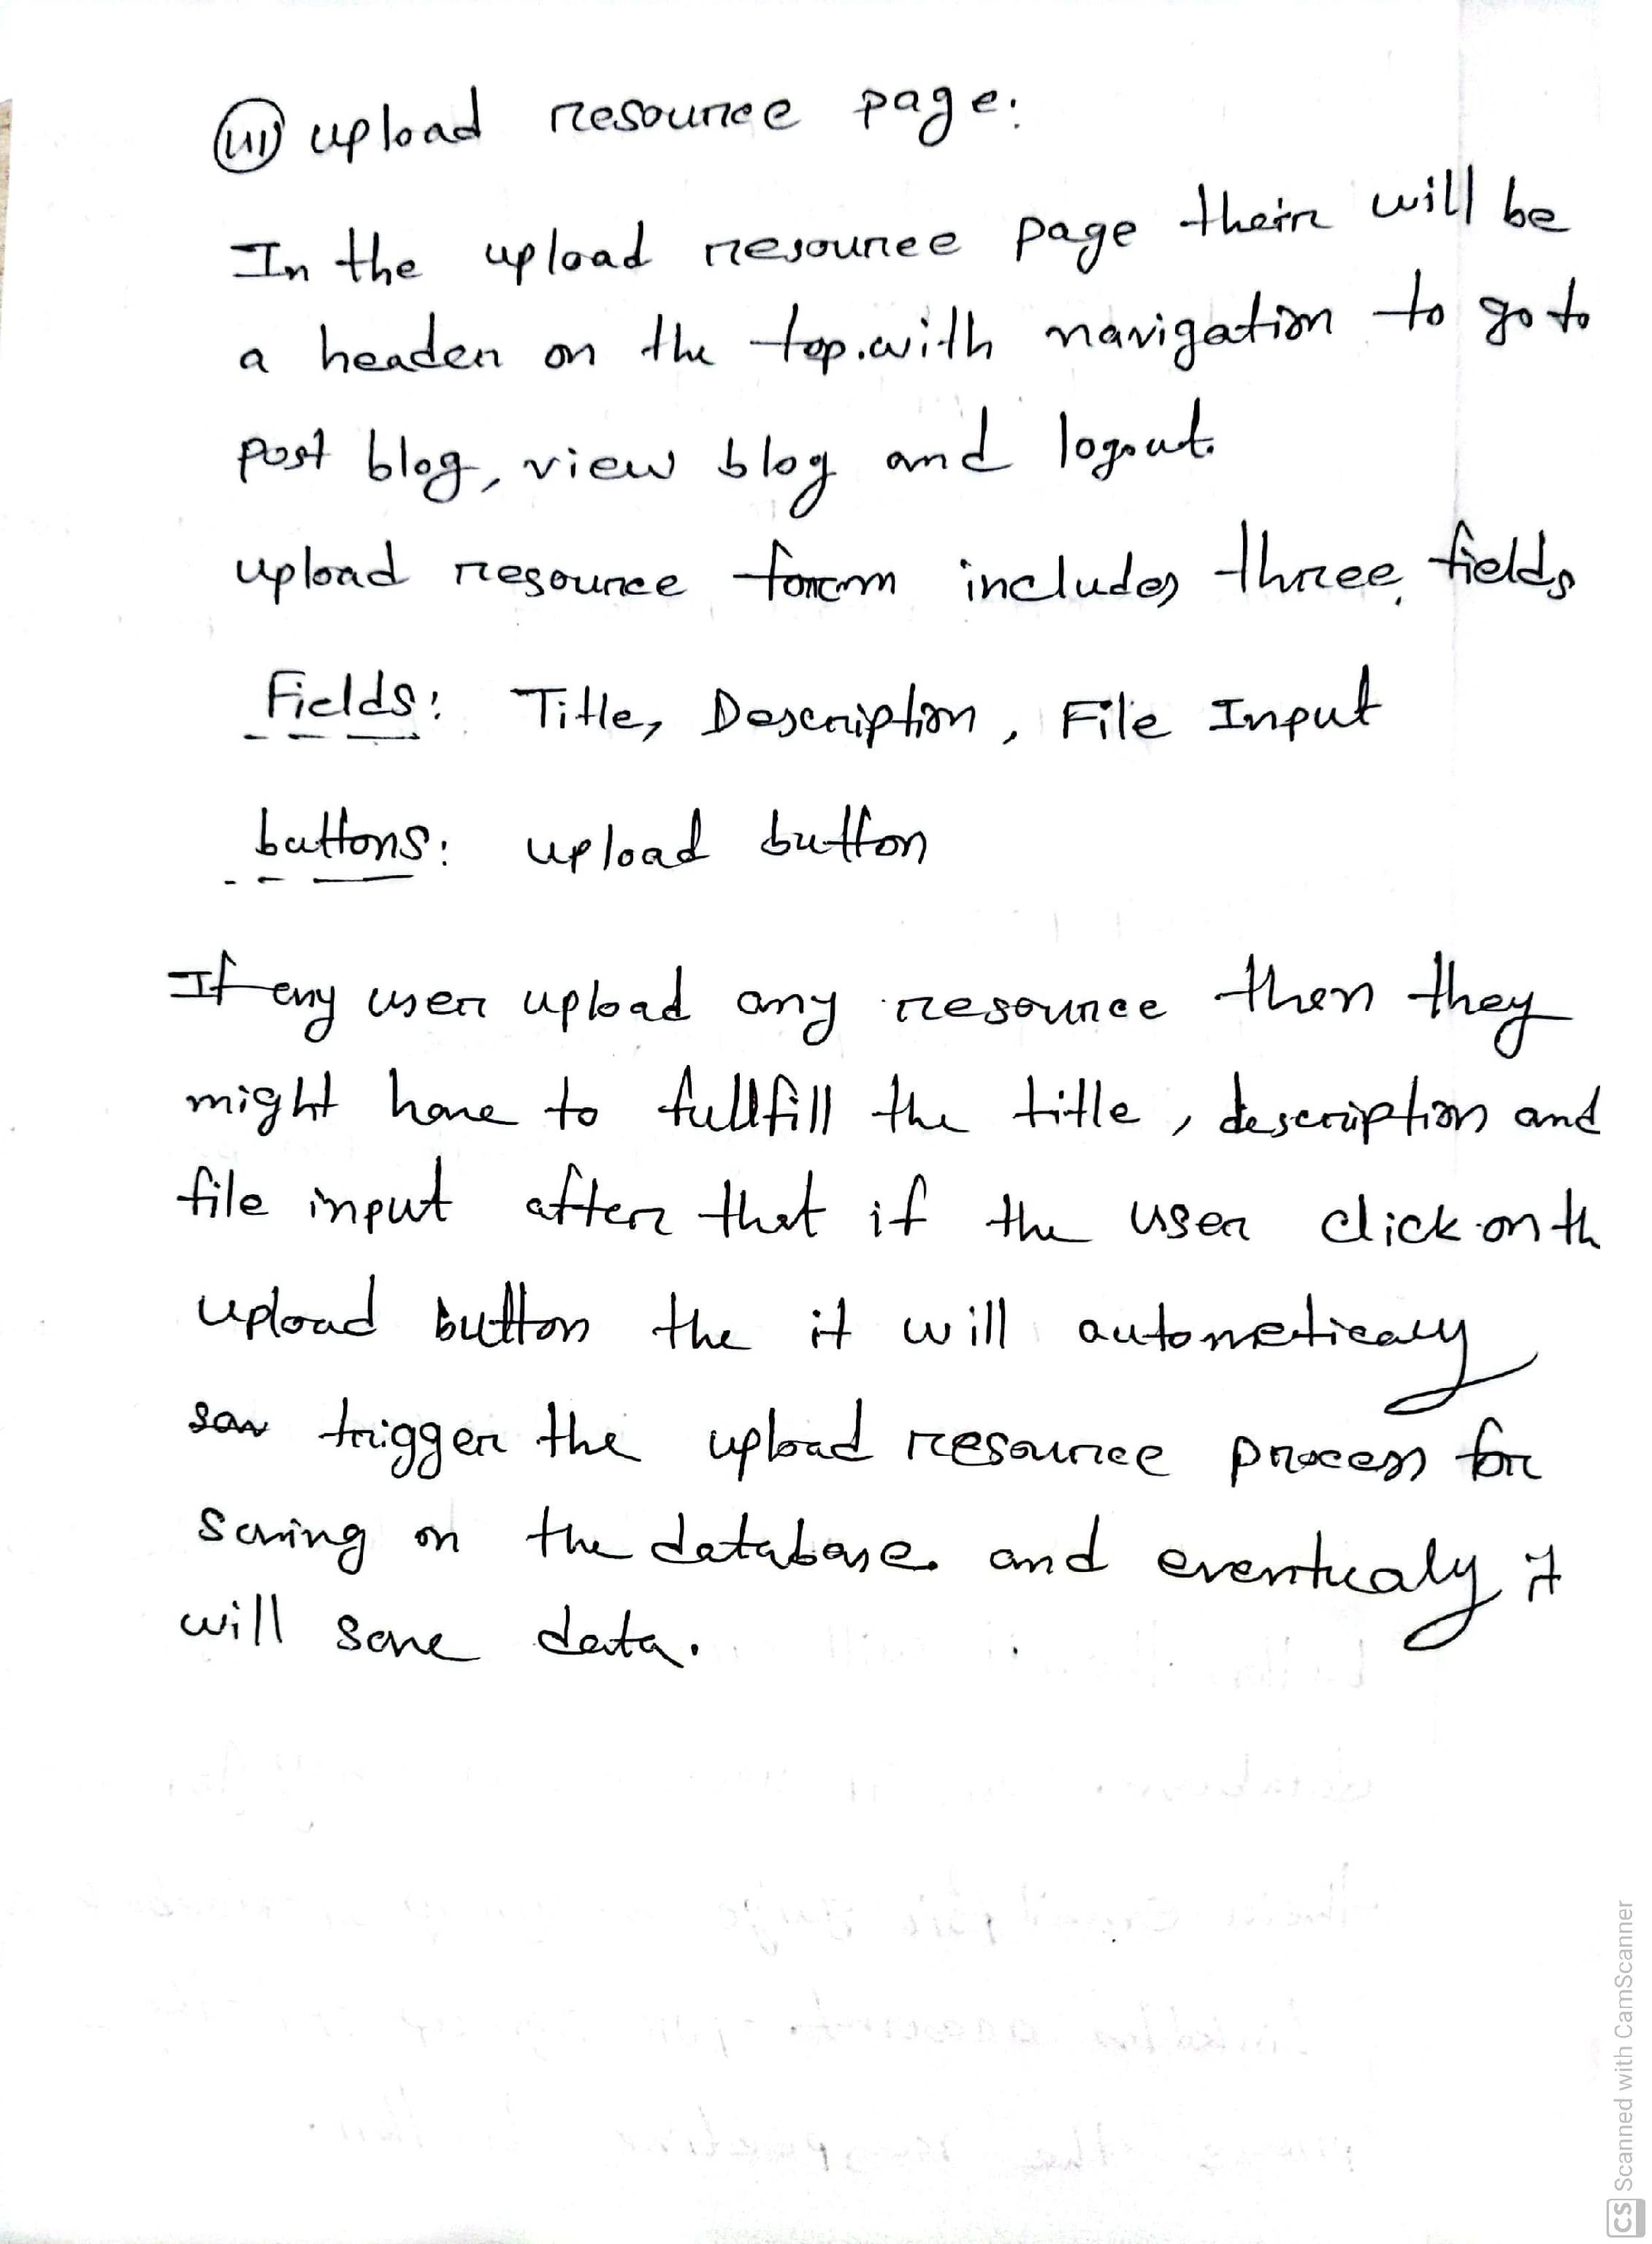 (iii) upload resource page:
In the upload resource page their will be
a header on the top. with navigation to go to
post blog, view blog and logout.
upload resource form includes three fields
Fields: Title, Description, File Input
buttons: upload button
If any user upload any resource then they
might have to fullfill the title, description and
file input after that if the user click on th
upload button the it will autometicaly
trigger the upload resource process for
saving on the database. and eventualy it
will save data.
CS Scanned with CamScanner